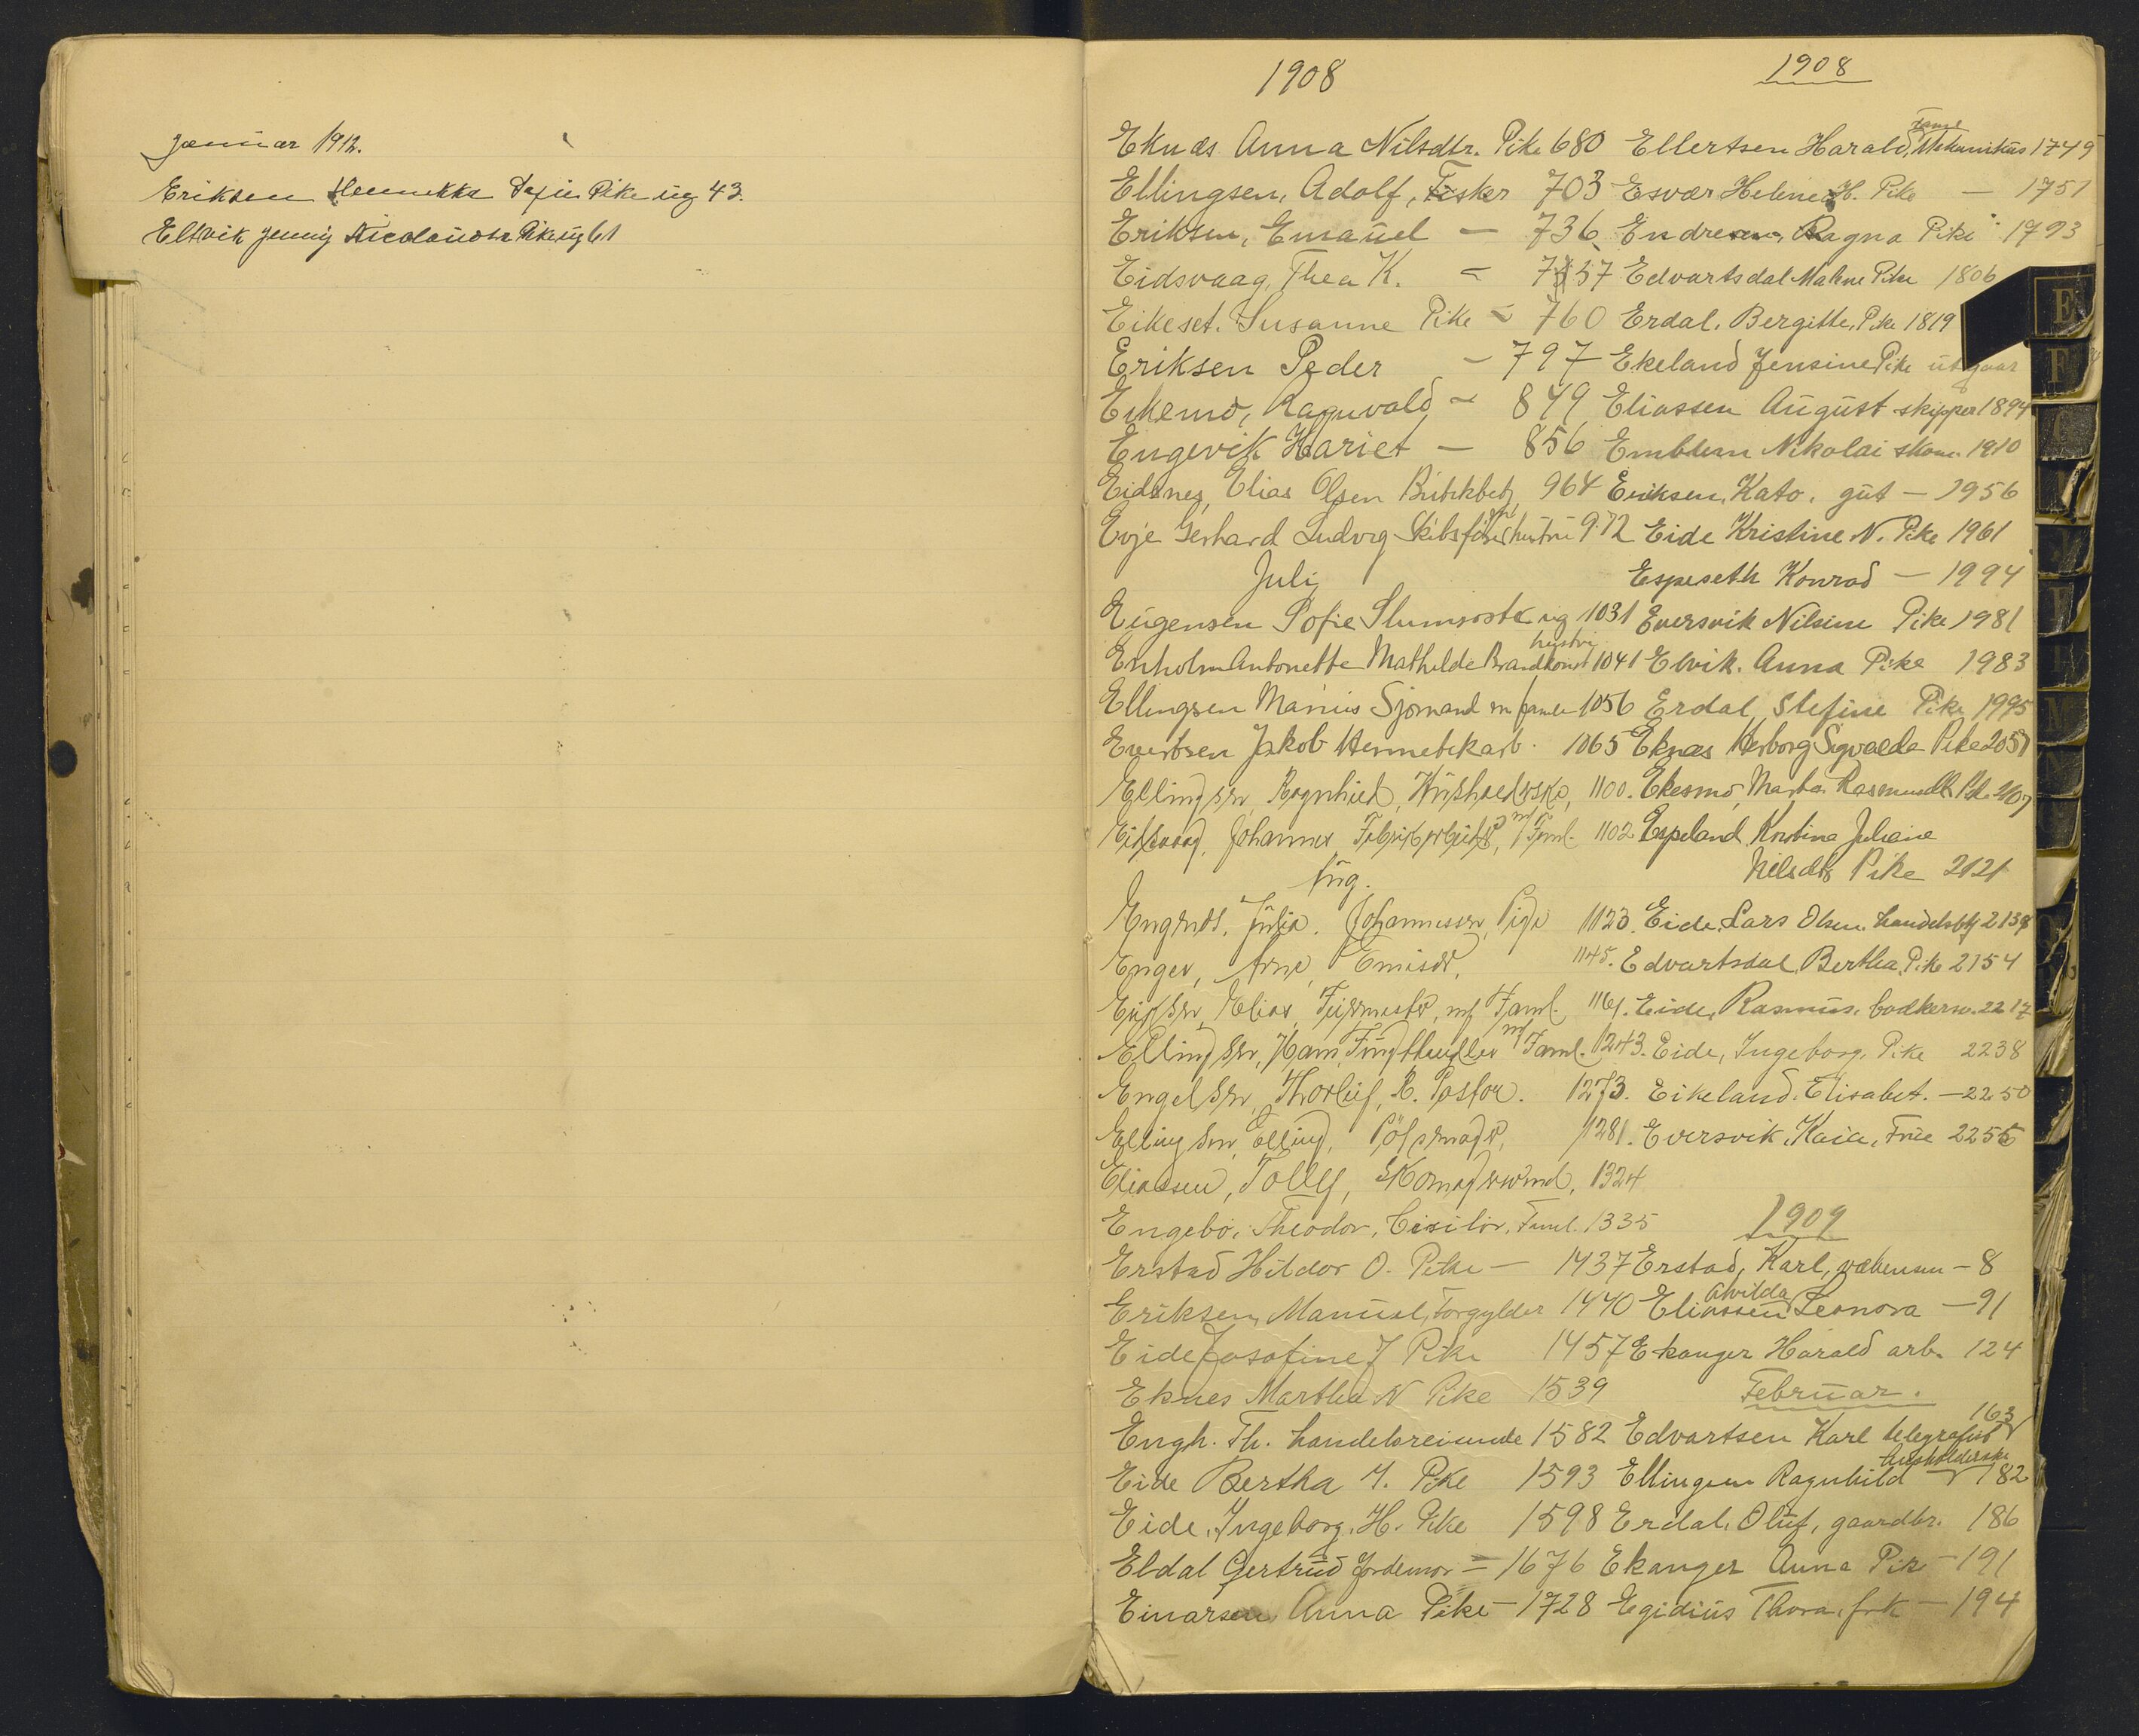 Januar 1912.
Eriksen Hennekka Pike ug 43.
Elsvik Jenny Nicolausdtr Pike ug 61
1908
Eknæs Anna Nilsdtr. Pike 680
Ellingsen, Adolf, Fisker 703
Eriksen, Emanuel — 736
Eidsvaag, Thea K. — 757
Eikeset. Susanne Pike — 760
Eriksen Peder — 797
Eikemo, Ragnvald — 849
Engevik Hariet — 856
Eidsnes, Elias Olsen 964
Evje Gerhard Ludvig Skibsfører hustru 972
Juli
Eugensen Sofie ug 1031
Enholm Antonette Mathilde hustru 1041
Ellingsen Marius Sjømand m famile 1056
Evertsen Jakob Hermetikarb. 1065
Ellingsen, Ragnhild, Husholderske, 1100.
Eidsvaag, Johannes Fabrikarbeider, m/ Faml. 1102
Aug.
Engnes, Julia. Johannesen, Pige 1123.
Enger, Arne, 1145.
Elias m/ Faml. 1161.
Ellingsen, m/ Faml. 1243.
Engelsen, Thorleif, R. Pastor. 1273.
Ellingsen, Elling, 1281.
Eliassen, Tolly, 1324
Engebø, Theodor, Faml. 1335
Erstad Hildor O. Pike — 1437
Eriksen, Manuel, Forgylder 1440
Eide Josofine J Pike 1457
Eknes Martha N Pike 1539
Engh. Th. handelsreisende 1582
Eide Bertha M. Pike 1593
Eide, Ingeborg. H. Pike 1598
Eldal Gertrud Jordemor — 1676
Einarsen, Anna Pike — 1728
1908
Ellertsen Harald, Mekanikus Famil 1749
Esvær Heline H. Pike — 1751
Endresen, Ragna Pike 1793
Edvartsdal Malene Pike 1806
Erdal, Bergitte, Pike 1819
Ekeland Jensine Pike utgaar
Eliassen August skipper 1894
Emblem Nikolai skom. 1910
Eriksen, Kato, gut — 1956
Eide Kristine N. Pike 1961
Espeseth Konrad — 1994
Eversvik Nilsine Pike 1981
Elvik. Anna Pike 1983
Erdal, Stefine Pike 1995
Eknæs Herborg Sigvalda Pike 2051
Ekesmo, Marta Rasmusdtr Pike 2107
Espeland Kristina Juliane
Nilsdtr Pike 2121
Eide, Lars Olsen handelsbtj 2138
Edvartsdal, Bertha, Pike 2154
Eide, Rasmus, bødkersv. 2217
Eide, Ingeborg, Pike 2238
Eikeland, Elisabet. — 2250
Eversvik, Kaia, Frue 2255
1909
Erstad, Karl, — 8
Eliassen Alvilda Leonora — 91
Ekanger Harald arb. 124
Februar.
Edvartsen Karl telegrafist 163
Ellingsen Ragnhild Husholderske 182
Erdal, Oluf, gaardbr. 186
Ekanger Anna Pike — 191
Egidius Thora, frk — 194
E
F